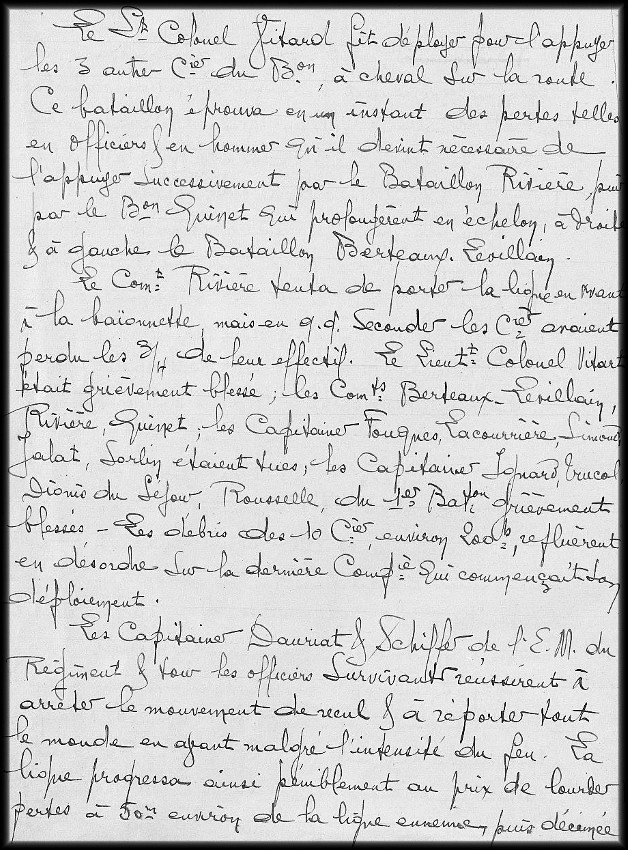 Le Lt Colonel Vitard fit déployer pour l'appuyer
les 3 autres Cies du Bon, à cheval sur la route.
Ce bataillon éprouva en un instant des pertes telles
en officiers & en hommes qu'il devint nécessaire de
l'appuyer successivement par le Bataillon Rivière, puis
par le Bon Guinet qui prolongèrent en échelon, à droite
& à gauche le Bataillon Berteaux-Levillain.
Le Comt Rivière tenta de porter la ligne en avant
à la baïonnette, mais en q.q. secondes les Cies avaient
perdu les 3/4 de leur effectif. Le Lieutt Colonel Vitart
était grièvement blessé; les Comts Berteaux-Levillain,
Rivière, Guinet, les Capitaines Fougues, Lacourrière, Simond,
Jalat, Sorlin étaient tués; les Capitaines Ignard, Trucol,
Dionis du Séjour, Rousselle, du 1er Baton grièvement
blessés - Les débris des 10 Cies, environ 200 h, refluèrent
en désordre sur la dernière Compie qui commençait son
déploiement.
Les Capitaines Dauriat & Schiffer de l'E.M. du
Régiment & tous les officiers survivants réussirent à
arrêter le mouvement de recul & à reporter tout
le monde en avant malgré l'intensité du feu. La
ligne progressa ainsi péniblement au prix de lourdes
pertes à 50m environ de la ligne ennemie, puis décimée